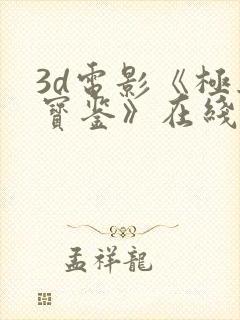 3d電影《極
寶鉴》在綫
孟祥龍